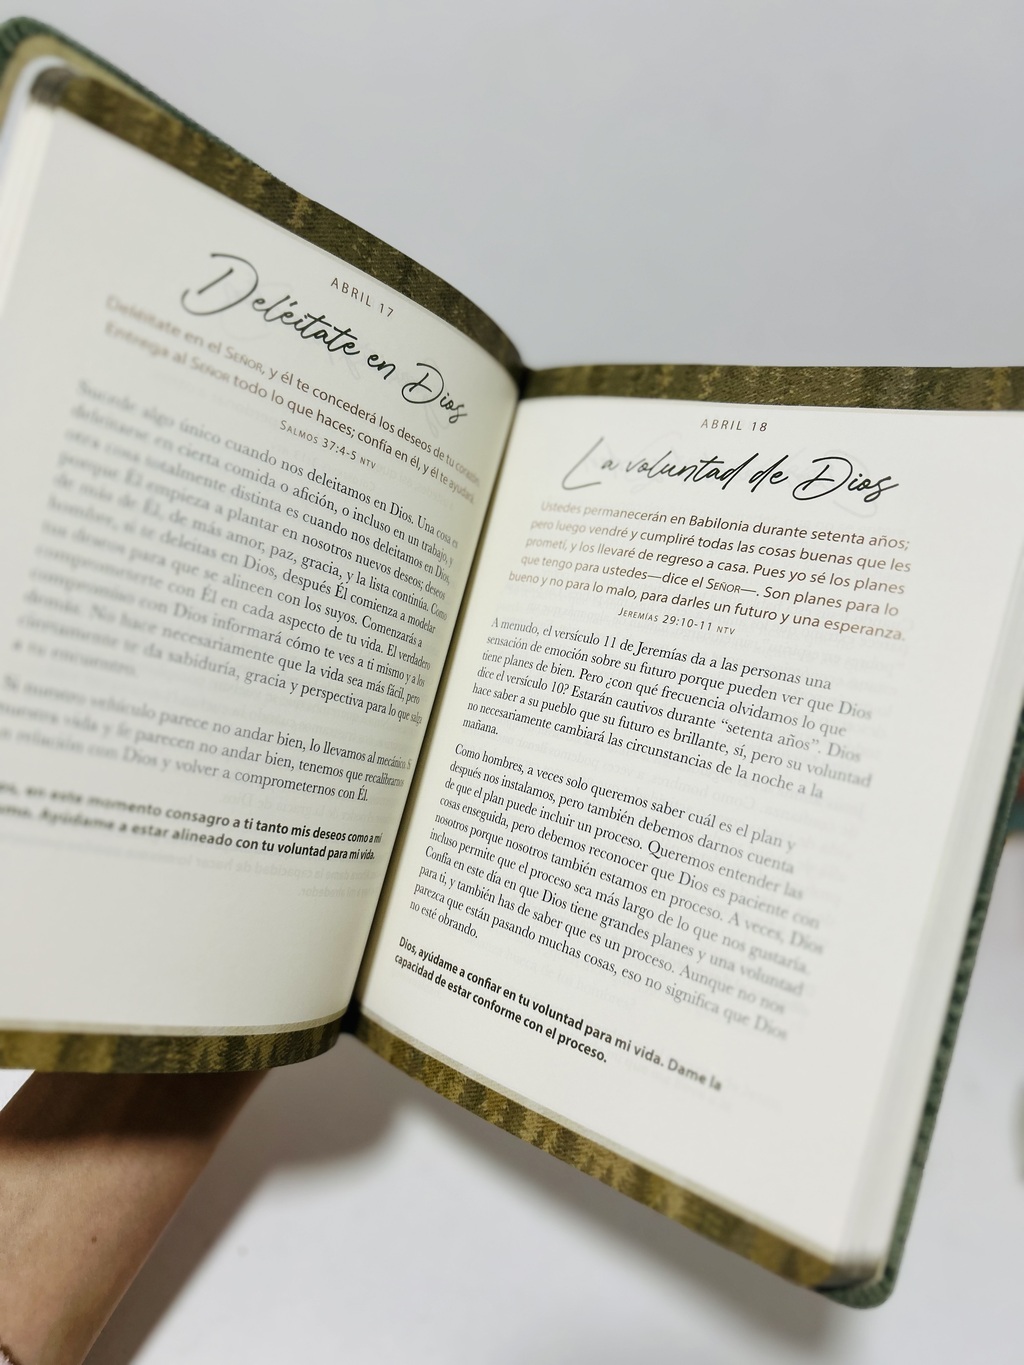 ABRIL 17
Deléitate en Dios
Deléitate en el SEÑOR, y él te concederá los deseos de tu corazón.
Entrega al SEÑOR todo lo que haces; confía en él, y él te ayudará.
SALMOS 37:4-5 NTV
Sucede algo único cuando nos deleitamos en Dios. Una cosa es
deleitarse en cierta comida o afición, o incluso en un trabajo, y
otra cosa totalmente distinta es cuando nos deleitamos en Dios,
porque Él empieza a plantar en nosotros nuevos deseos; deseos
de más de Él, de más amor, paz, gracia, y la lista continúa. Como
hombre, si te deleitas en Dios, después Él comienza a modelar
tus deseos para que se alineen con los suyos. Comenzarás a
comprometerte con Él en cada aspecto de tu vida. El verdadero
compromiso con Dios informará cómo te ves a ti mismo y a los
demás. No hace necesariamente que la vida sea más fácil, pero
ciertamente te da sabiduría, gracia y perspectiva para lo que salga
a tu encuentro.
Si nuestro vehículo parece no andar bien, lo llevamos al mecánico. Si
nuestra vida y fe parecen no andar bien, tenemos que recalibrarnos
relación con Dios y volver a comprometernos con Él.
en este momento consagro a ti tanto mis deseos como a mí
Ayúdame a estar alineado con tu voluntad para mi vida.
ABRIL 18
La voluntad de Dios
Ustedes permanecerán en Babilonia durante setenta años;
pero luego vendré y cumpliré todas las cosas buenas que les
prometí, y los llevaré de regreso a casa. Pues yo sé los planes
que tengo para ustedes—dice el SEÑOR—. Son planes para lo
bueno y no para lo malo, para darles un futuro y una esperanza.
JEREMÍAS 29:10-11 NTV
A menudo, el versículo 11 de Jeremías da a las personas una
sensación de emoción sobre su futuro porque pueden ver que Dios
tiene planes de bien. Pero ¿con qué frecuencia olvidamos lo que
dice el versículo 10? Estarán cautivos durante “setenta años”. Dios
hace saber a su pueblo que su futuro es brillante, sí, pero su voluntad
no necesariamente cambiará las circunstancias de la noche a la
mañana.
Como hombres, a veces solo queremos saber cuál es el plan y
después nos instalamos, pero también debemos darnos cuenta
de que el plan puede incluir un proceso. Queremos entender las
cosas enseguida, pero debemos reconocer que Dios es paciente con
nosotros porque nosotros también estamos en proceso. A veces, Dios
incluso permite que el proceso sea más largo de lo que nos gustaría.
Confía en este día en que Dios tiene grandes planes y una voluntad
para ti, y también has de saber que es un proceso. Aunque no nos
parezca que están pasando muchas cosas, eso no significa que Dios
no esté obrando.
Dios, ayúdame a confiar en tu voluntad para mi vida. Dame la
capacidad de estar conforme con el proceso.